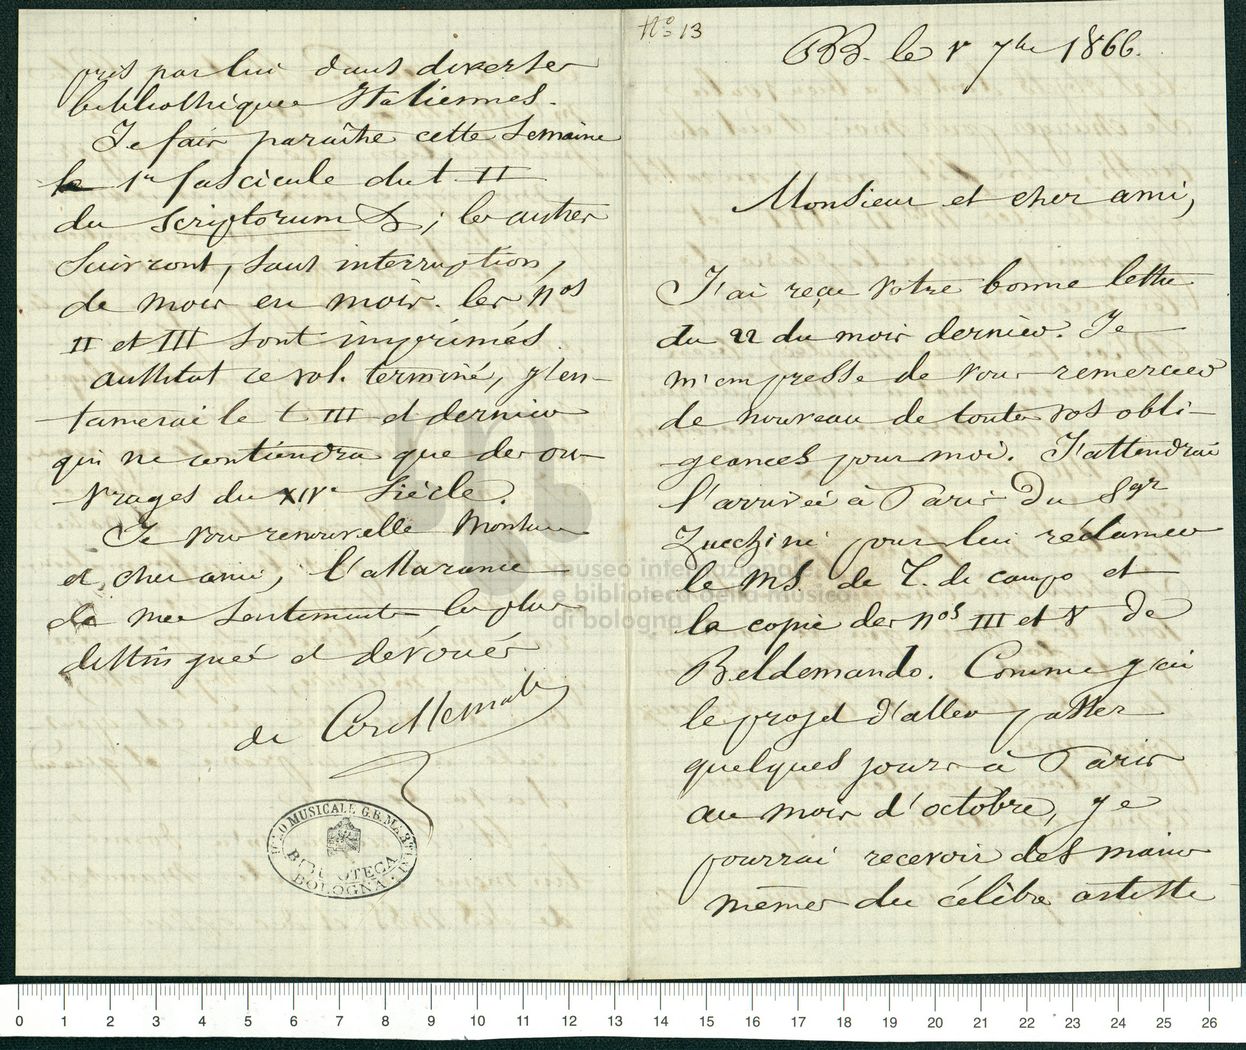 N° 13
BB. le 5 7bre 1866.
Monsieur et cher ami,
J'ai reçu votre bonne lettre
du 22 du mois dernier. Je
m'empresse de vous remercier
de nouveau de toutes vos obli-
geances pour moi. J'attendrai
l'arrivée à Paris du Sgr
Zucchini pour lui réclamer
le MS de T. di campo et
la copie des nos III et V de
Beldemando. Comme j'ai
le projet d'aller passer
quelques jours à Paris
au mois d'octobre, je
pourrai recevoir des mains
mêmes du célèbre artiste
pris par lui dans diverses
bibliothèques Italiennes.
Je fais paraître cette semaine
le 1er fascicule du t. II
du Scriptorum &; les autres
suivront, sans interruption,
de mois en mois. les nos
II et III sont imprimés.
aussitôt ce vol. terminé, j'en-
tamerai le t III et dernier
qui ne contiendra que des ou-
vrages du XIVe siècle.
Je vous renouvelle Monsieur
et cher ami, l'assurance
de mes sentiments les plus
distingués et dévoués
de Coussemaker
LICEO MUSICALE G.B. MARTINI
BIBLIOTECA
BOLOGNA
museo internazionale
e biblioteca della musica
di bologna
0 1 2 3 4 5 6 7 8 9 10 11 12 13 14 15 16 17 18 19 20 21 22 23 24 25 26